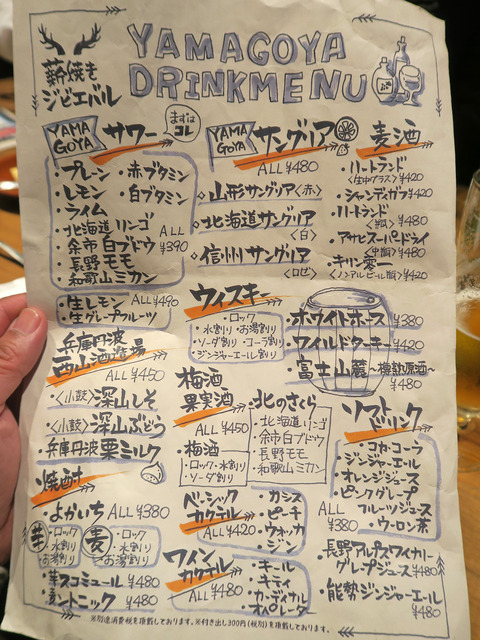 YAMAGOYA
DRINKMENU
薪焼き
ジビエバル
YAMA
GOYA
サワー
まずは
コレ
・プレーン
・レモン
・ライム
・北海道リンゴ
・余市白ブドウ
・長野モモ
・和歌山ミカン
・赤ブタミン
白ブタミン
ALL
¥390
・生レモン
・生グレープフルーツ
ALL¥490
YAMA
GOYA
サングリア
ALL¥480
◇山形サングリア〈赤〉
◇北海道サングリア
〈白〉
◇信州サングリア
〈ロゼ〉
麦酒
・ハートランド
〈生中グラス〉¥420
・シャンディガフ¥420
・ハートランド
〈瓶〉¥480
・アサヒスーパードライ
〈中瓶〉¥480
・キリン零一
〈ノンアルビール瓶〉¥420
ウィスキー
・ロック
・水割り・お湯割り
・ソーダ割り・コーラ割り
・ジンジャーエール割り
・ホワイトホース ¥380
・ワイルドターキー ¥420
・富士山麓〜樽熟原酒〜
¥480
兵庫丹波
西山酒造場
ALL¥450
〈小鼓〉深山しそ
〈小鼓〉深山ぶどう
兵庫丹波栗ミルク
梅酒
果実酒
ALL¥450
・梅酒
・ロック・水割り
・ソーダ割り
・北のさくら
・北海道リンゴ
余市白ブドウ
長野モモ
和歌山ミカン
ソフト
ドリンク
・コカ・コーラ
・ジンジャーエール
・オレンジジュース
・ピンクグレープ
フルーツジュース
・ウーロン茶
ALL
¥380
・長野アルプスワイナリー
グレープジュース
¥480
・能勢ジンジャーエール
¥480
焼酎
・よかいち ALL¥380
芋
・ロック
・水割り
お湯割り
麦
・ロック
・水割り
お湯割り
・芋スコミュール ¥480
・麦ントニック ¥480
ベーシック
カクテル
ALL¥420
・カシス
・ピーチ
・ウォッカ
・ジン
ワイン
カクテル
ALL¥480
・キール
・キティ
・カーディナル
・オペレーター
※別途消費税を頂戴しております。※付き出し300円(税別)を頂戴しております。